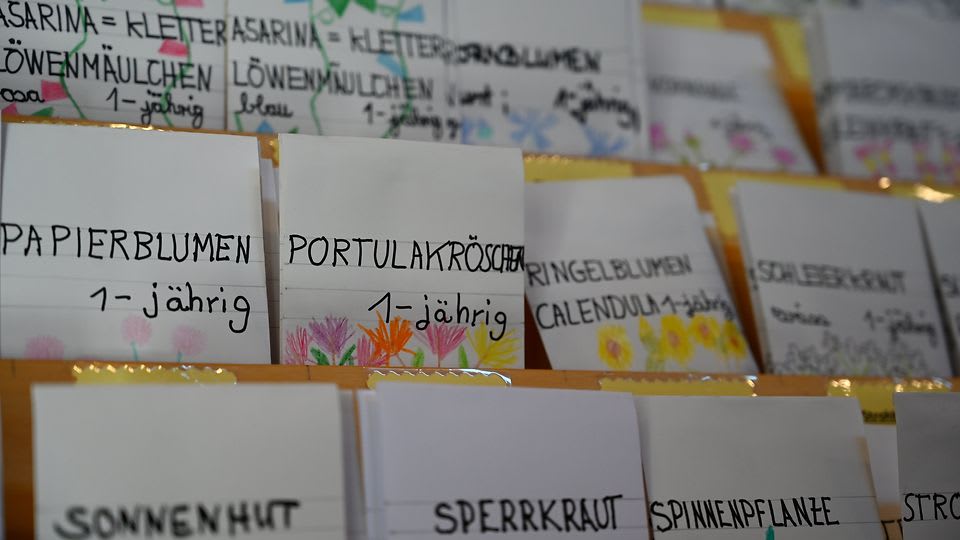 ASARINA = KLETTER
LÖWENMÄULCHEN
rosa 1-jährig
ASARINA = KLETTER
LÖWENMÄULCHEN
blau 1-jährig
KORNBLUMEN
bunt 1-jährig
PAPIERBLUMEN
1-jährig
PORTULAKRÖSCHEN
1-jährig
RINGELBLUMEN
CALENDULA 1-jährig
SCHLEIERKRAUT
1-jährig
SONNENHUT
SPERRKRAUT
SPINNENPFLANZE
STRO